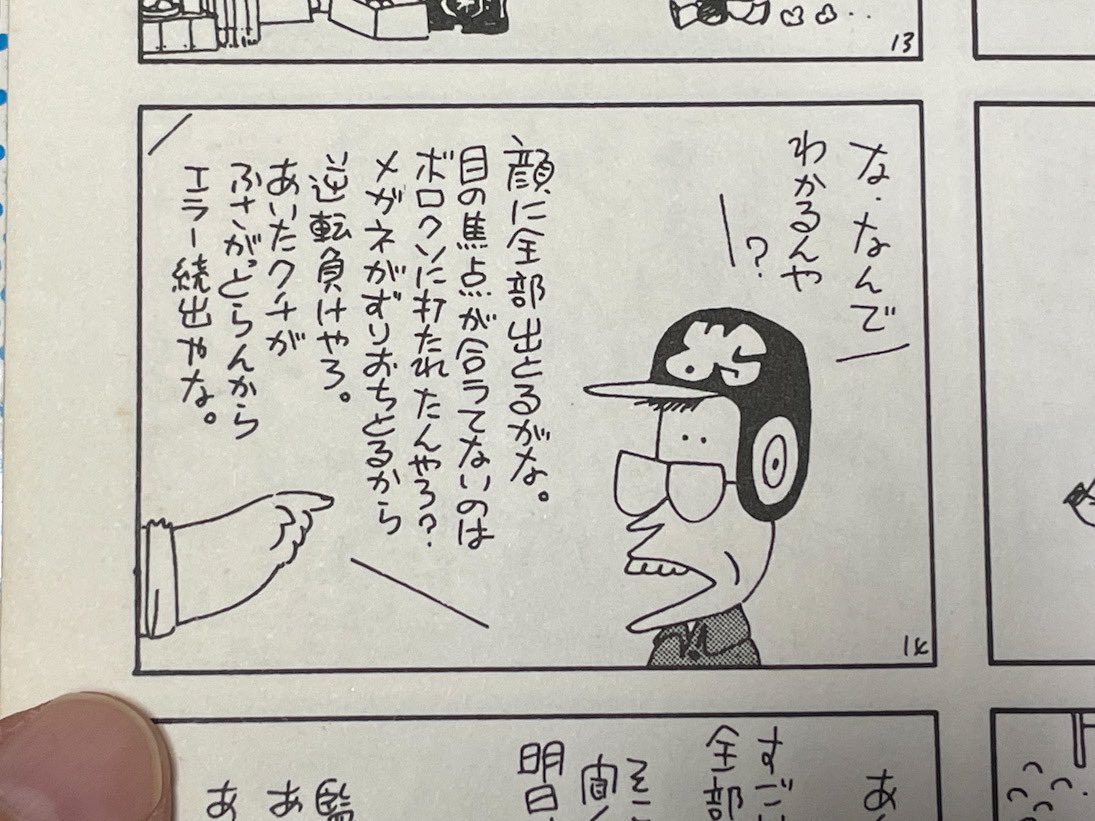 13
な、なんで
わかるんや
?
顔に全部出とるがな。
目の焦点が合うてないのは
ボロクソに打たれたんやろ?
メガネがずりおちとるから
逆転負けやろ。
あいたクチが
ふさがっとらんから
エラー続出やな。
14
すご
全部
そこ
明日
監
あ
あ